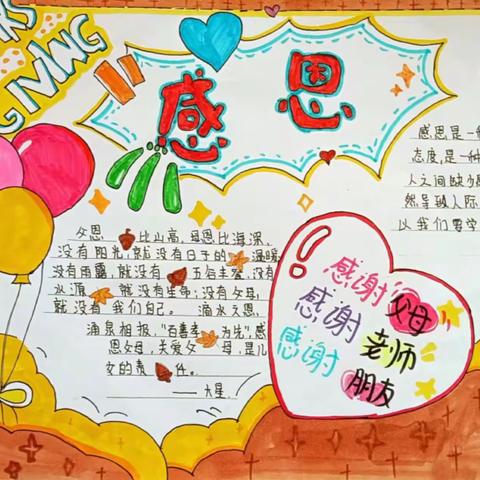 GIVING
感恩
父恩 比山高,母恩比海深,
没有阳光,就没有日子的 温暖,
没有雨露,就没有 五谷丰登,没有
水源 就没有生命;没有父母,
就没有我们自己。滴水之恩,
涌泉相报,"百善孝 为先",感
恩父母,关爱父 母,是儿
女的责 任。
——大星
感谢父母
感谢老师
感谢朋友
感恩是一种
态度,是一种
人之间缺少
然导致人际
以我们要学